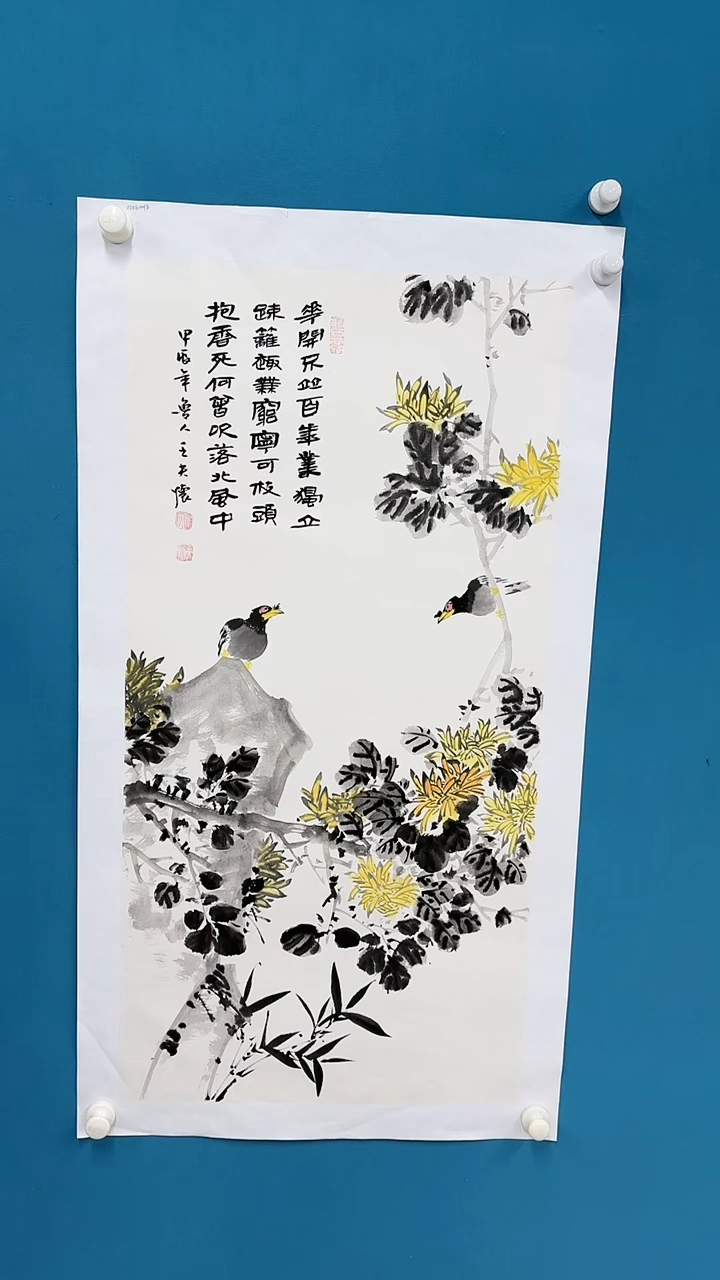 華開不並百華叢獨立
疎籬趣無窮寧可枝頭
抱香死何曾吹落北風中
甲辰年魯人王